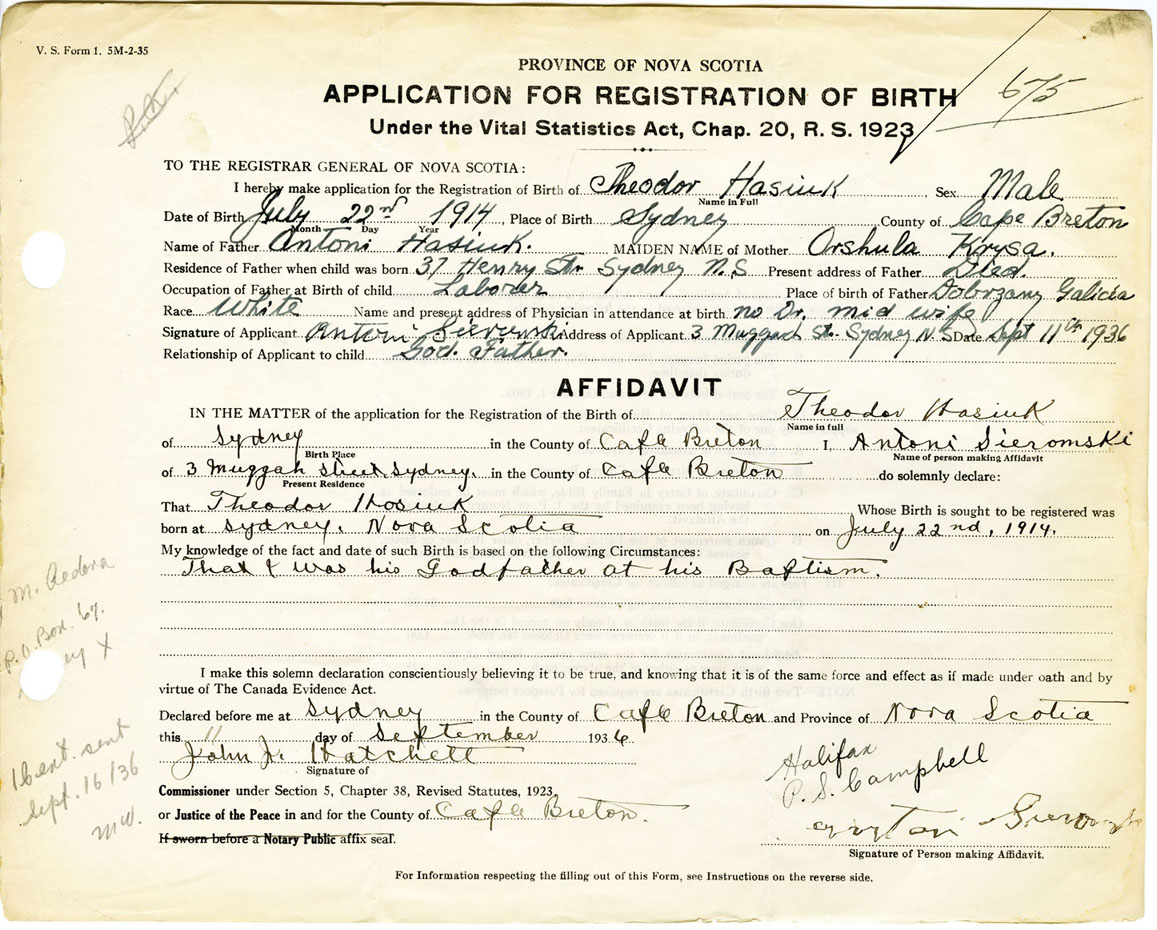 V. S. Form 1. 5M-2-35
PROVINCE OF NOVA SCOTIA
675
APPLICATION FOR REGISTRATION OF BIRTH
Under the Vital Statistics Act, Chap. 20, R. S. 1923
TO THE REGISTRAR GENERAL OF NOVA SCOTIA:
I hereby make application for the Registration of Birth of Theodor Hasiuk Sex Male
Name in Full
Date of Birth July 22nd 1914, Place of Birth Sydney County of Cape Breton
Month Day Year
Name of Father Antoni Hasiuk. MAIDEN NAME of Mother Orshula Krysa.
Residence of Father when child was born 37 Henry Str. Sydney N.S Present address of Father Died.
Occupation of Father at Birth of child Laborer Place of birth of Father Dobrzany Galicia
Race White Name and present address of Physician in attendance at birth no Dr. mid wife
Signature of Applicant Antoni Address of Applicant 3 Muggah St. Sydney N.S Date Sept 11th 1936
Relationship of Applicant to child God. Father.
AFFIDAVIT
IN THE MATTER of the application for the Registration of the Birth of Theodor Hasiuk
Name in full
of Sydney in the County of Cape Breton I, Antoni Sieromski
Birth Place Name of person making Affidavit
of 3 Muggah Street, Sydney. in the County of Cape Breton do solemnly declare:
Present Residence
That Theodor Hasiuk Whose Birth is sought to be registered was
born at Sydney, Nova Scotia on July 22nd, 1914.
My knowledge of the fact and date of such Birth is based on the following Circumstances:
That I was his Godfather at his Baptism.
M. Aedora
P.O. Box. 67.
I make this solemn declaration conscientiously believing it to be true, and knowing that it is of the same force and effect as if made under oath and by
virtue of The Canada Evidence Act.
Declared before me at Sydney in the County of Cape Breton and Province of Nova Scotia
this 11 day of September 1936
John J. Hatchett
Signature of
Halifax
P. S. Campbell
sent
Sept. 16/36
MW.
Commissioner under Section 5, Chapter 38, Revised Statutes, 1923,
or Justice of the Peace in and for the County of Cape Breton.
If sworn before a Notary Public affix seal.
Signature of Person making Affidavit.
For Information respecting the filling out of this Form, see Instructions on the reverse side.